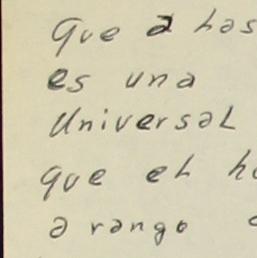 Que a las
es una
Universal
que el h
a rango